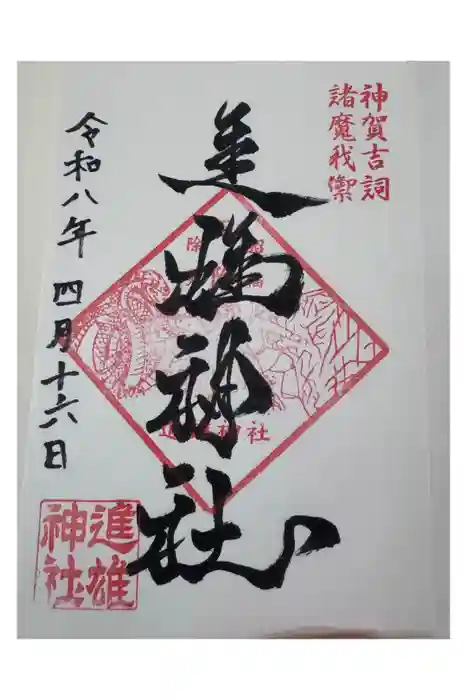 神賀吉詞
諸魔我禦
進雄神社
令和八年 四月十六日
進雄
神社